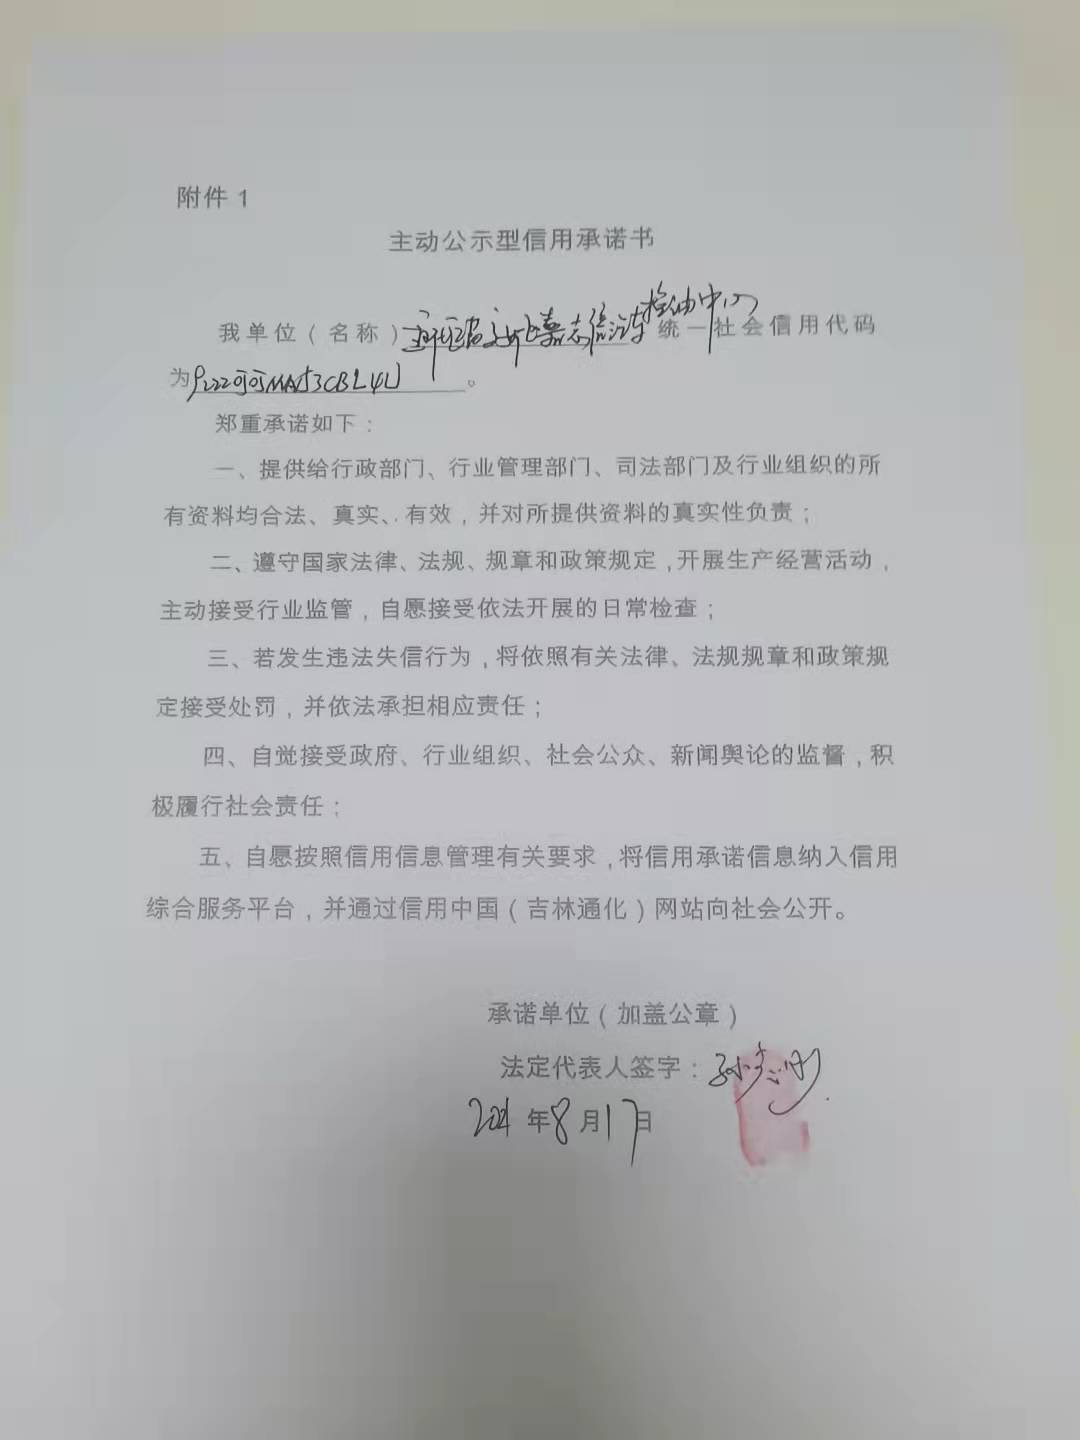 附件 1
主动公示型信用承诺书
我单位（名称）嘉志信汽车 中心 统一社会信用代码
为 。
郑重承诺如下：
一、提供给行政部门、行业管理部门、司法部门及行业组织的所
有资料均合法、真实、有效，并对所提供资料的真实性负责；
二、遵守国家法律、法规、规章和政策规定，开展生产经营活动，
主动接受行业监管，自愿接受依法开展的日常检查；
三、若发生违法失信行为，将依照有关法律、法规规章和政策规
定接受处罚，并依法承担相应责任；
四、自觉接受政府、行业组织、社会公众、新闻舆论的监督，积
极履行社会责任；
五、自愿按照信用信息管理有关要求，将信用承诺信息纳入信用
综合服务平台，并通过信用中国（吉林通化）网站向社会公开。
承诺单位（加盖公章）
法定代表人签字：孙志刚
2021 年 8 月 17 日